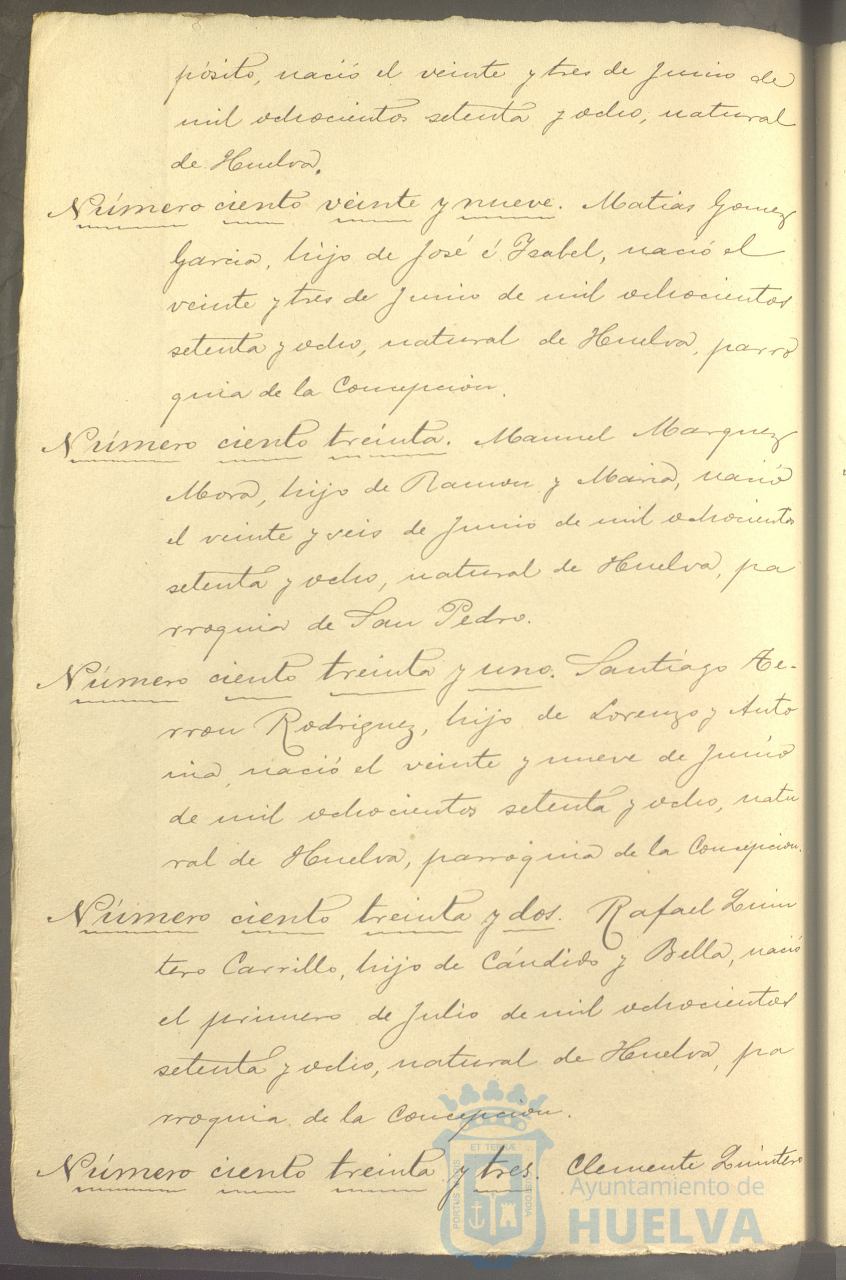 pósito, nació el veinte y tres de Junio de
mil ochocientos setenta y ocho, natural
de Huelva.
Número ciento veinte y nueve. Matias Gomez
Garcia, hijo de José é Isabel, nació el
veinte y tres de Junio de mil ochocientos
setenta y ocho, natural de Huelva, parro
quia de la Concepción.
Número ciento treinta. Manuel Marquez
Mora, hijo de Ramon y Maria, nació
el veinte y seis de Junio de mil ochocientos
setenta y ocho, natural de Huelva, pa
rroquia de San Pedro.
Número ciento treinta y uno. Santiago Te-
rron Rodriguez, hijo de Lorenzo y Anto
nia, nació el veinte y nueve de Junio
de mil ochocientos setenta y ocho, natu
ral de Huelva, parroquia de la Concepcion.
Número ciento treinta y dos. Rafael Quin
tero Carrillo, hijo de Cándido y Bella, nació
el primero de Julio de mil ochocientos
setenta y ocho, natural de Huelva, pa
rroquia de la Concepcion.
Número ciento treinta y tres. Clemente Quintero
ET TERRÆ
PORTUS MARIS
CUSTODIA
Ayuntamiento de
HUELVA